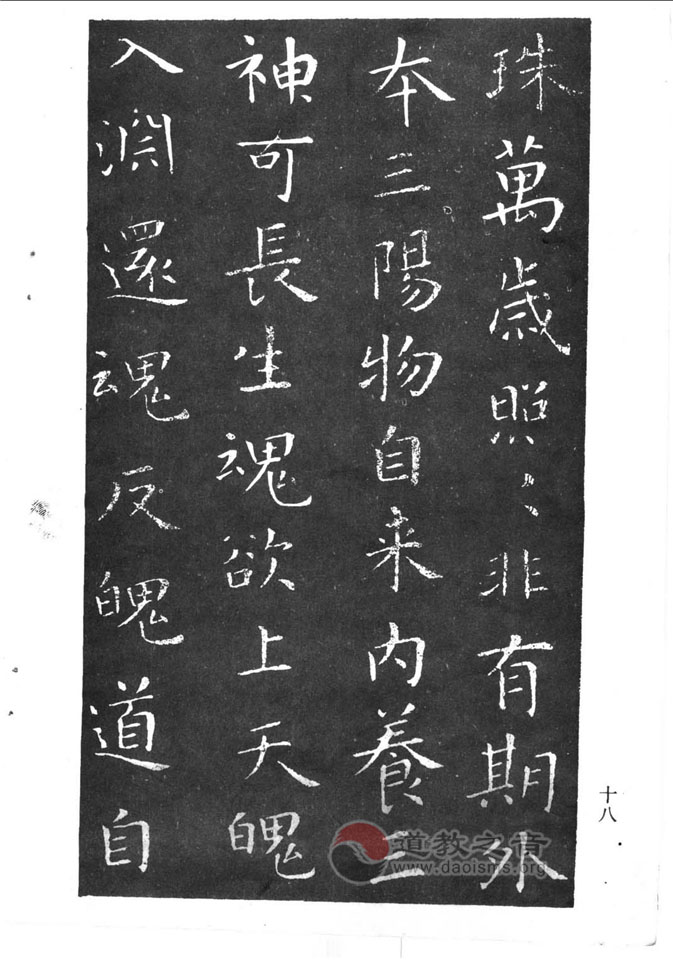 珠萬歲照〻非有期外
本三陽物自来内養三
神可長生魂欲上天魄
入淵還魂反魄道自
十八
道教之音
www.daoisms.org